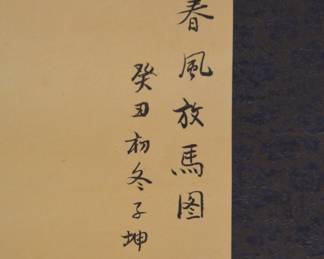 春風放馬图
癸丑初冬子坤